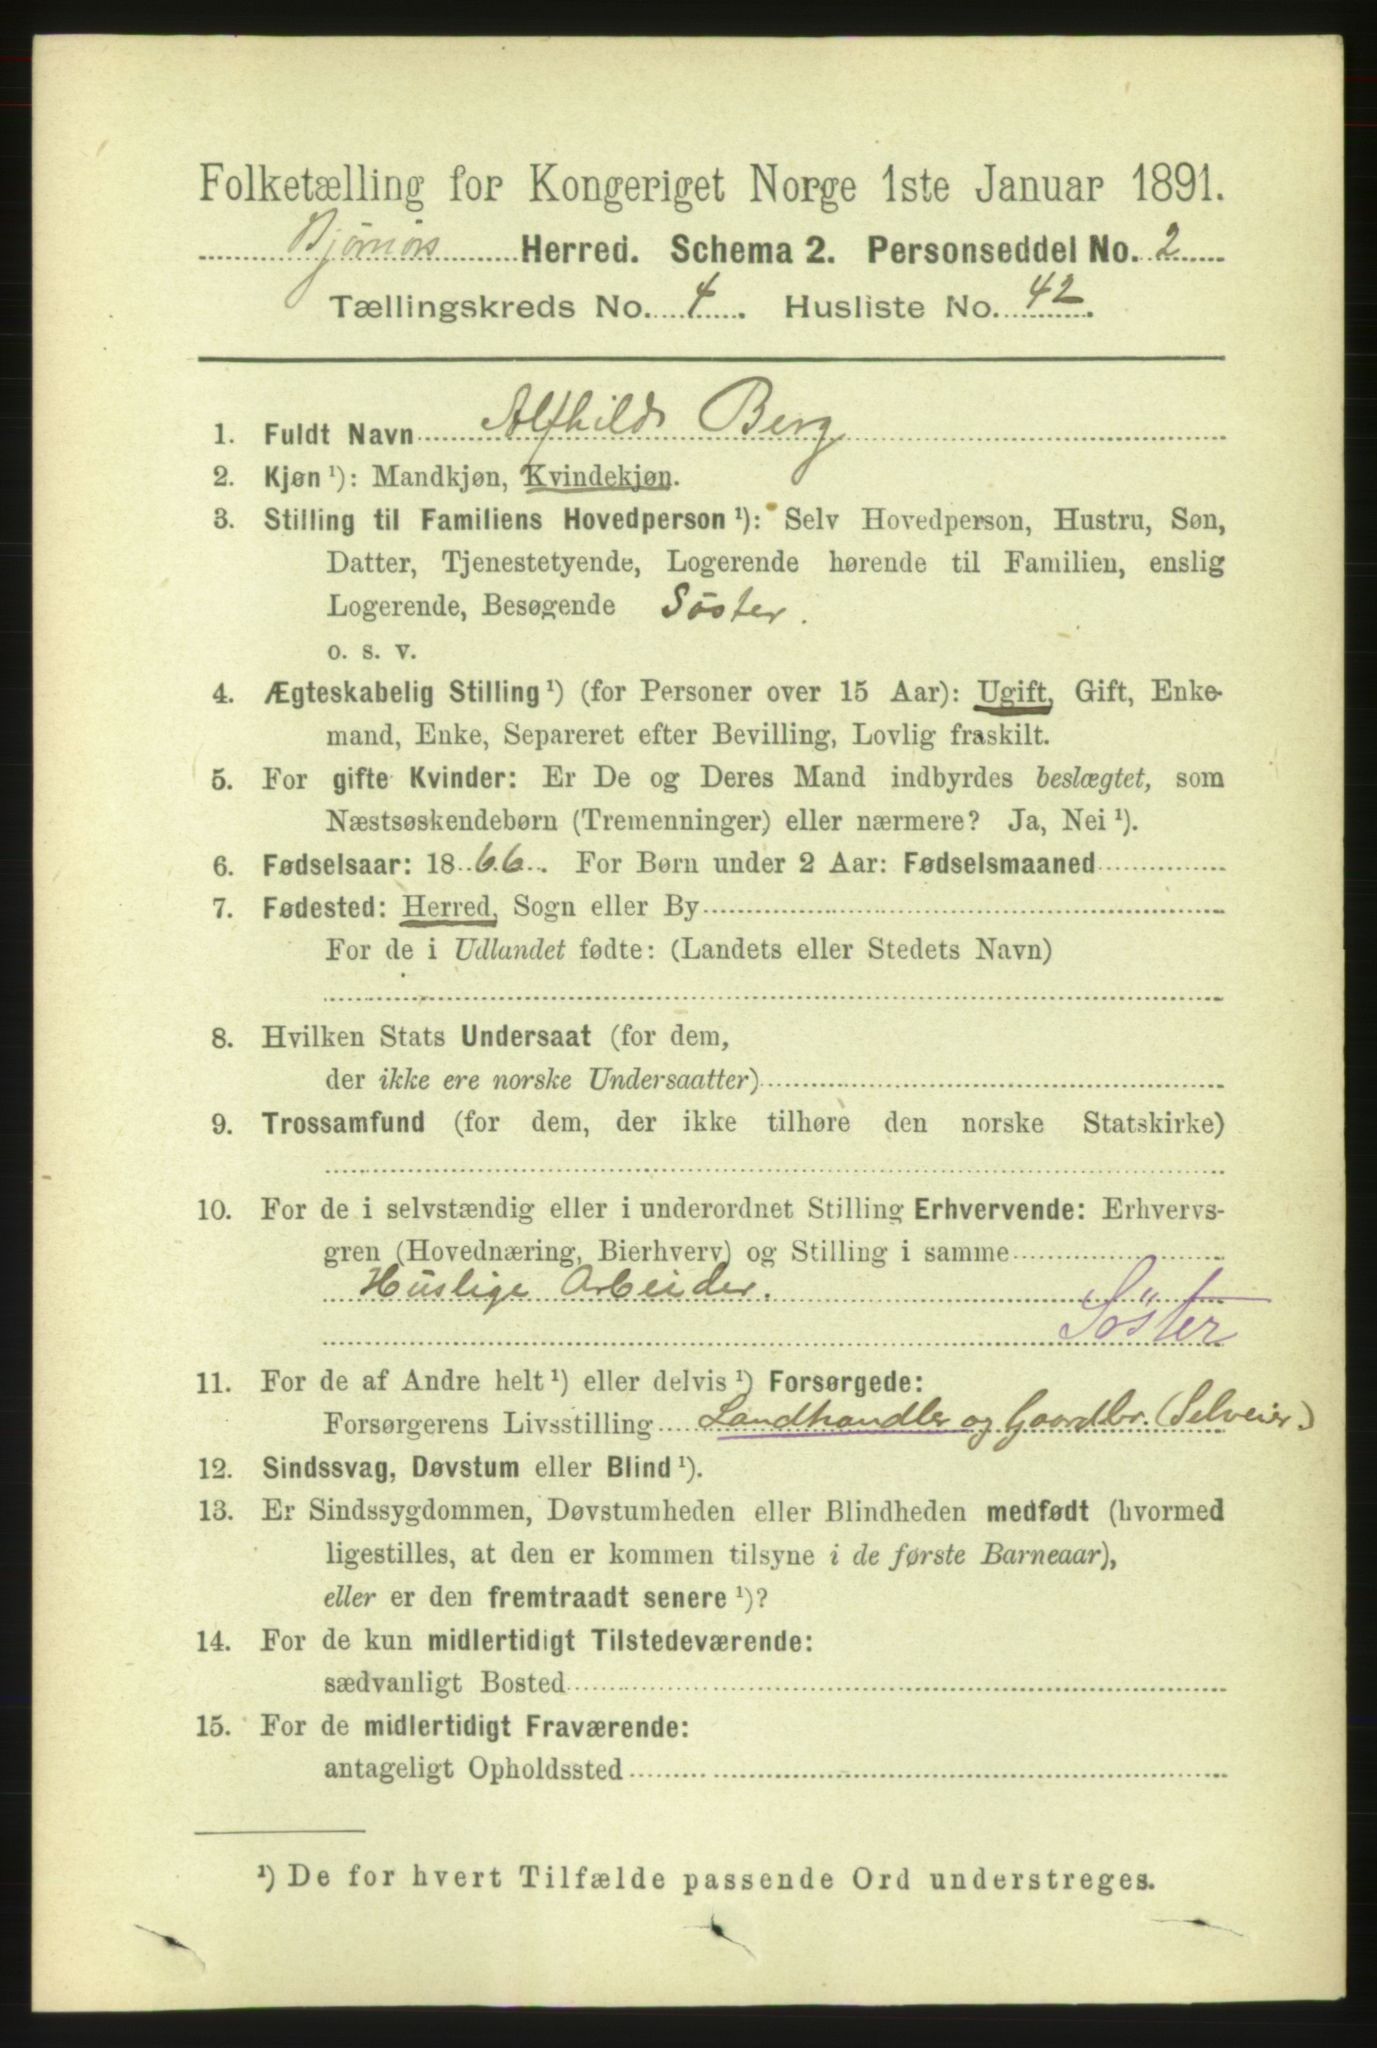 Folketælling for Kongeriget Norge 1ste Januar 1891.
Bjørnørs Herred. Schema 2. Personseddel No. 2
Tællingskreds No. 4. Husliste No. 42.
1. Fuldt Navn Alfhild Berg
2. Kjøn ¹): Mandkjøn, Kvindekjøn.
3. Stilling til Familiens Hovedperson ¹): Selv Hovedperson, Hustru, Søn,
Datter, Tjenestetyende, Logerende hørende til Familien, enslig
Logerende, Besøgende Söster.
o. s. v.
4. Ægteskabelig Stilling ¹) (for Personer over 15 Aar): Ugift, Gift, Enke-
mand, Enke, Separeret efter Bevilling, Lovlig fraskilt.
5. For gifte Kvinder: Er De og Deres Mand indbyrdes beslægtet, som
Næstsøskendebørn (Tremenninger) eller nærmere? Ja, Nei ¹).
6. Fødselsaar: 1866. For Børn under 2 Aar: Fødselsmaaned
7. Fødested: Herred, Sogn eller By
For de i Udlandet fødte: (Landets eller Stedets Navn)
8. Hvilken Stats Undersaat (for dem,
der ikke ere norske Undersaatter)
9. Trossamfund (for dem, der ikke tilhøre den norske Statskirke)
10. For de i selvstændig eller i underordnet Stilling Erhvervende: Erhvervs-
gren (Hovednæring, Bierhverv) og Stilling i samme
Huslige Arbeider.
Söster
11. For de af Andre helt ¹) eller delvis ¹) Forsørgede:
Forsørgerens Livsstilling Landhandler og Gaardbr. (Selveier)
12. Sindssvag, Døvstum eller Blind ¹).
13. Er Sindssygdommen, Døvstumheden eller Blindheden medfødt (hvormed
ligestilles, at den er kommen tilsyne i de første Barneaar),
eller er den fremtraadt senere ¹)?
14. For de kun midlertidigt Tilstedeværende:
sædvanligt Bosted
15. For de midlertidigt Fraværende:
antageligt Opholdssted
¹) De for hvert Tilfælde passende Ord understreges.